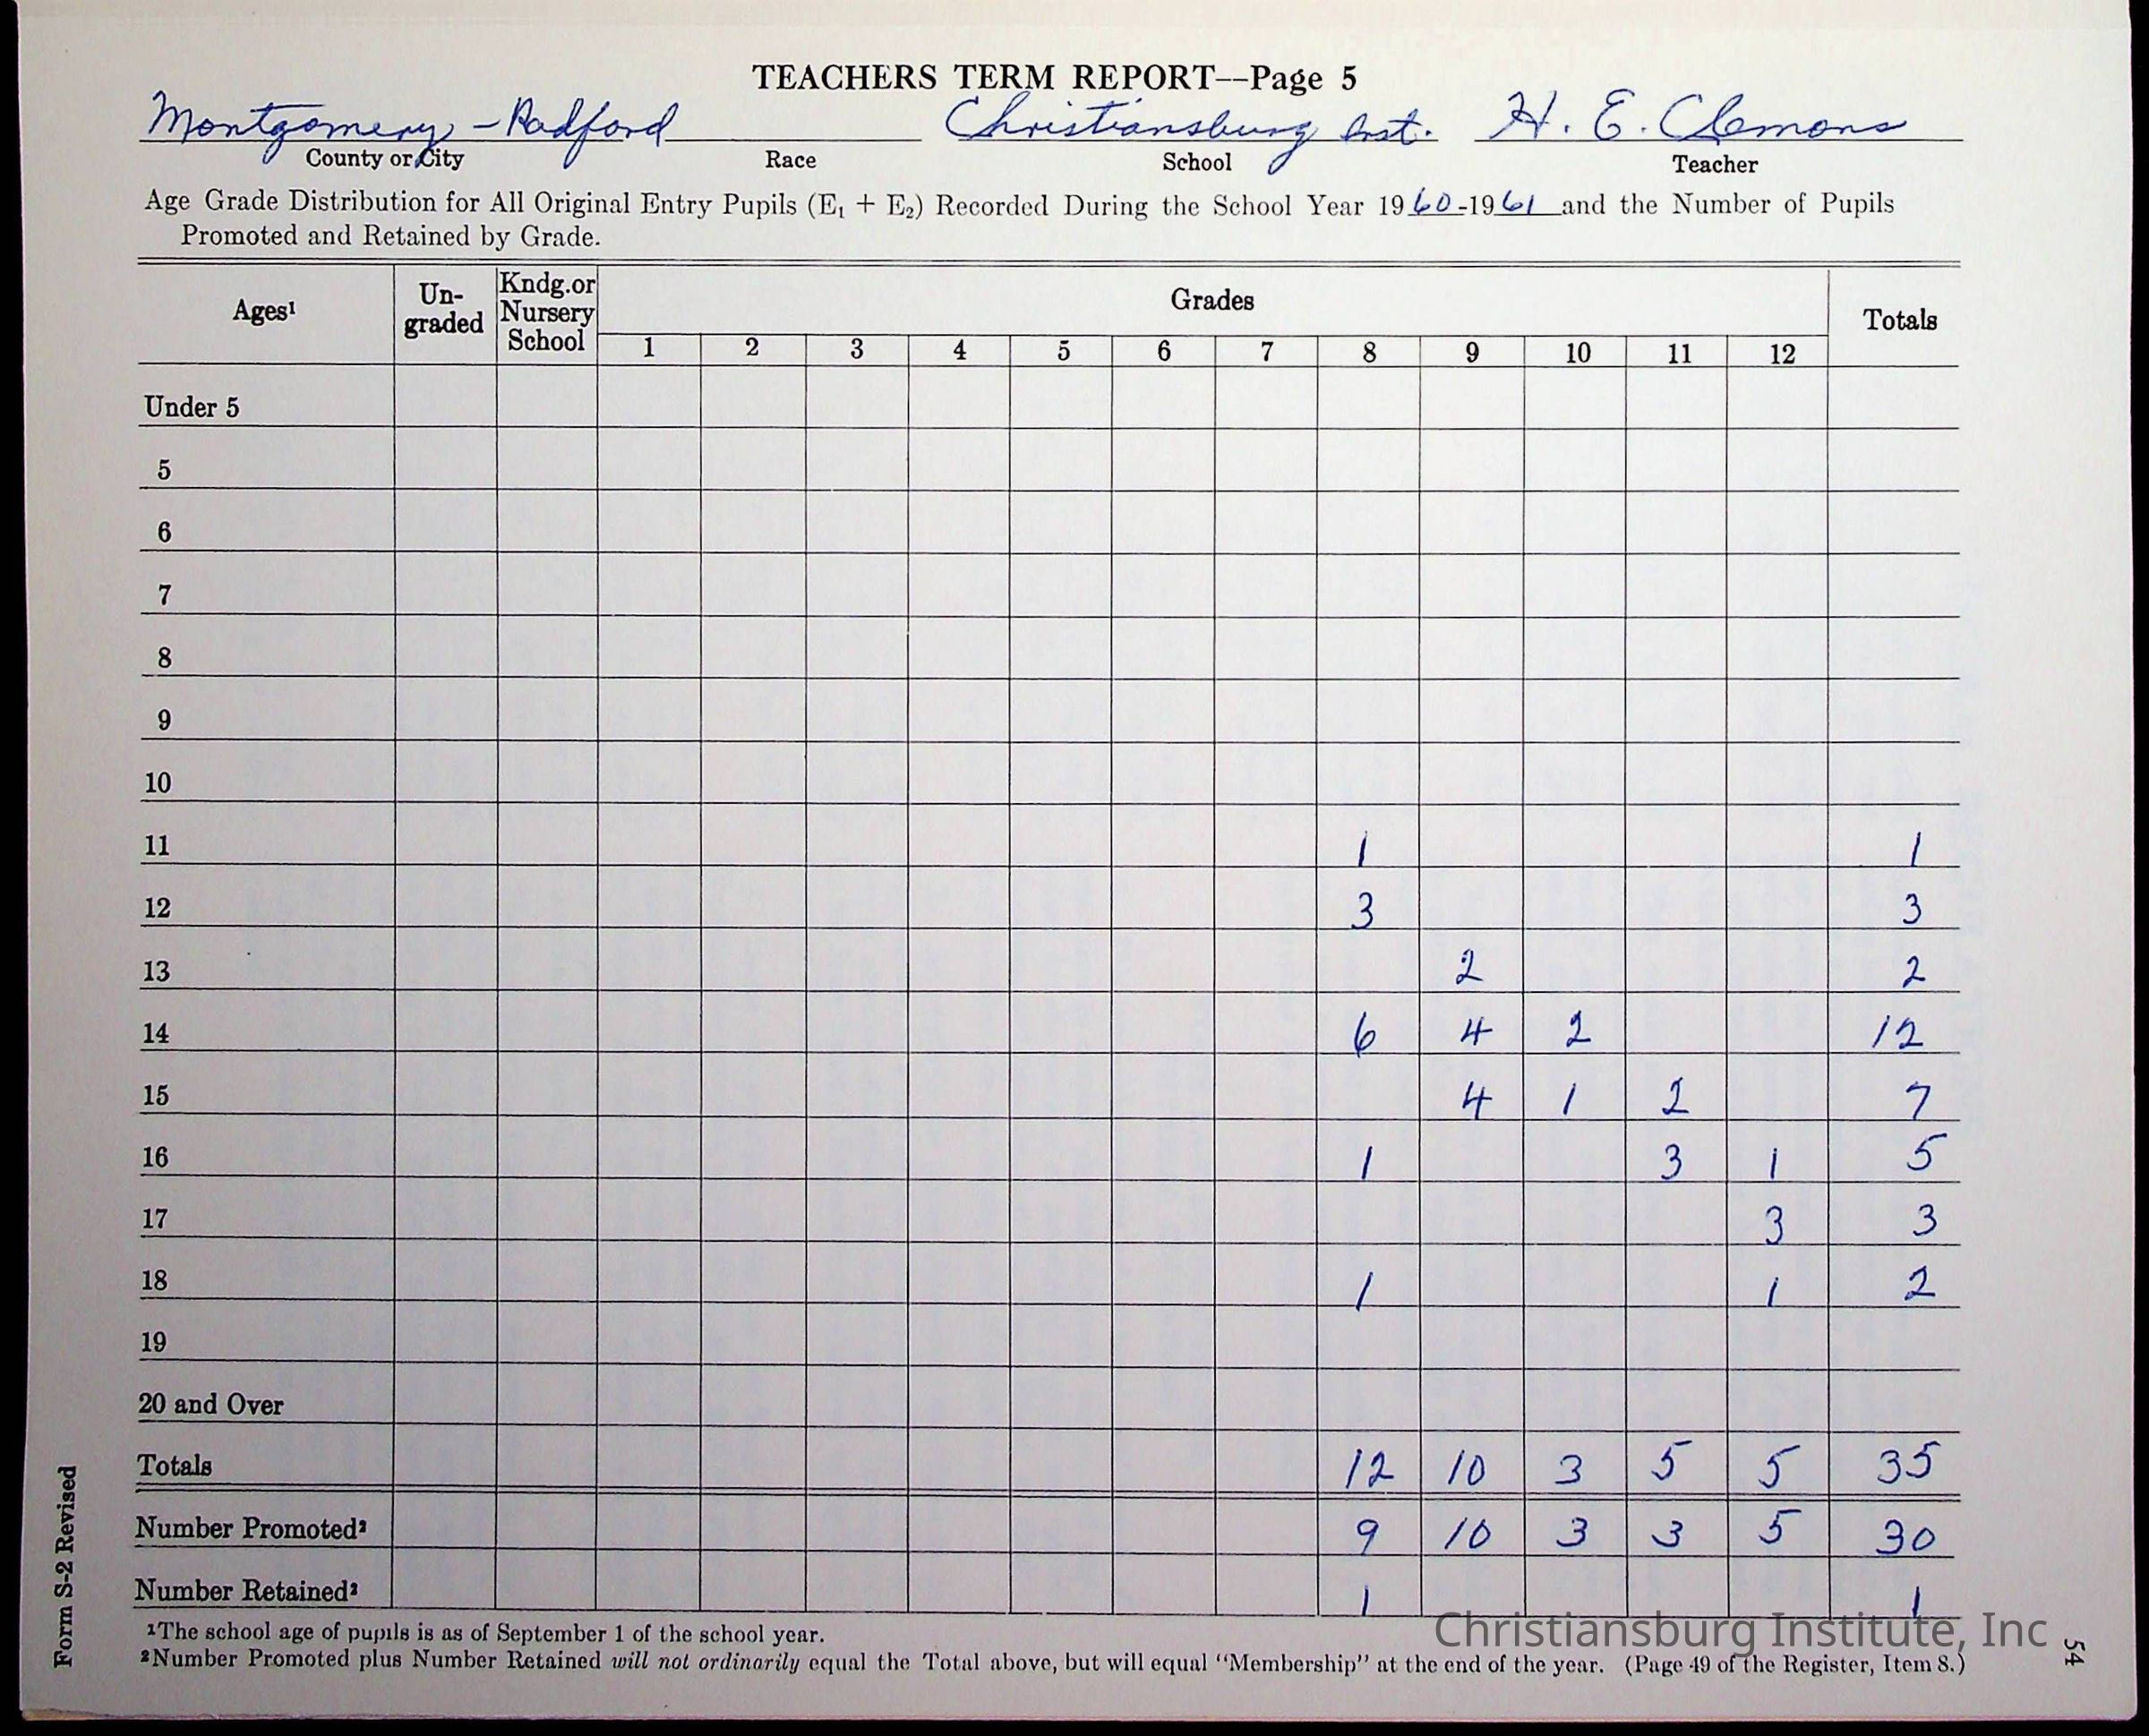 TEACHERS TERM REPORT--Page 5
Montgomery - Radford Christiansburg Inst. H. E. Clemons
County or City Race School Teacher
Age Grade Distribution for All Original Entry Pupils (E₁ + E₂) Recorded During the School Year 1960-1961 and the Number of Pupils
Promoted and Retained by Grade.
Ages¹ Un-graded Kndg.or Nursery School Grades Totals
1 2 3 4 5 6 7 8 9 10 11 12
Under 5
5
6
7
8
9
10
11 1 1
12 3 3
13 2 2
14 6 4 2 12
15 4 1 2 7
16 1 3 1 5
17 3 3
18 1 1 2
19
20 and Over
Totals 12 10 3 5 5 35
Number Promoted² 9 10 3 3 5 30
Number Retained² 1 1
¹The school age of pupils is as of September 1 of the school year.
²Number Promoted plus Number Retained will not ordinarily equal the Total above, but will equal "Membership" at the end of the year. (Page 49 of the Register, Item 8.)
Form S-2 Revised
54
Christiansburg Institute, Inc